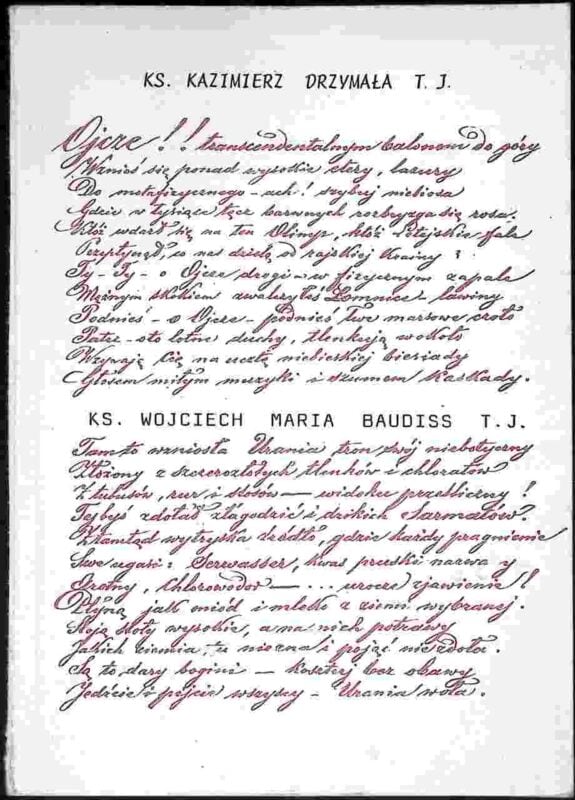 KS. KAZIMIERZ DRZYMAŁA T. J.
Ojcze!! transcendentalnym balonem do góry
Wznieś się ponad wysokie etery, lazury
Do metafizycznego - ach! szybuj niebiosa
Gdzie w tysiące tęcz barwnych rozbryzga się rosa.
Któż wdarł się na ten Olimp, któż fale
co nas dzielą od rajskiej krainy?
Ty - Ty - o Ojcze drogi - w fizycznym zapale
Mężnym skokiem zwalczyłeś Łomnicę, lawiny
Podnieś - o Ojcze - podnieś Twe marsowe czoło
Patrz - oto lotne duchy, tlenkują wokoło
Wzywają Cię na ucztę niebieskiej biesiady
Głosem miłym muzyki i szumem kaskady.
KS. WOJCIECH MARIA BAUDISS T. J.
Tam to wzniosła Urania tron swój niebotyczny
Złożony z szczerozłotych tlenków i chloratów
Z tubusów, rur i stosów - widoku prześliczny!
Tyś zdołał złagodzić i dzikich Sarmatów.
Z tamtąd wytryska źródło, gdzie każdy pragnienie
Swe ugasi: Serwasser, kwas pruski nazwą
Chlorowodór - ... urocze zjawienie!!
Płyną jak miód i mleko z ziemi wybranej.
Stoją stoły wysokie, a na nich potrawy
Jakich ziemia tu nie zna i pojąć nie zdoła.
Są to dary bogini - kosztuj bez obawy
Jedzcie i pijcie wszyscy - Urania woła.